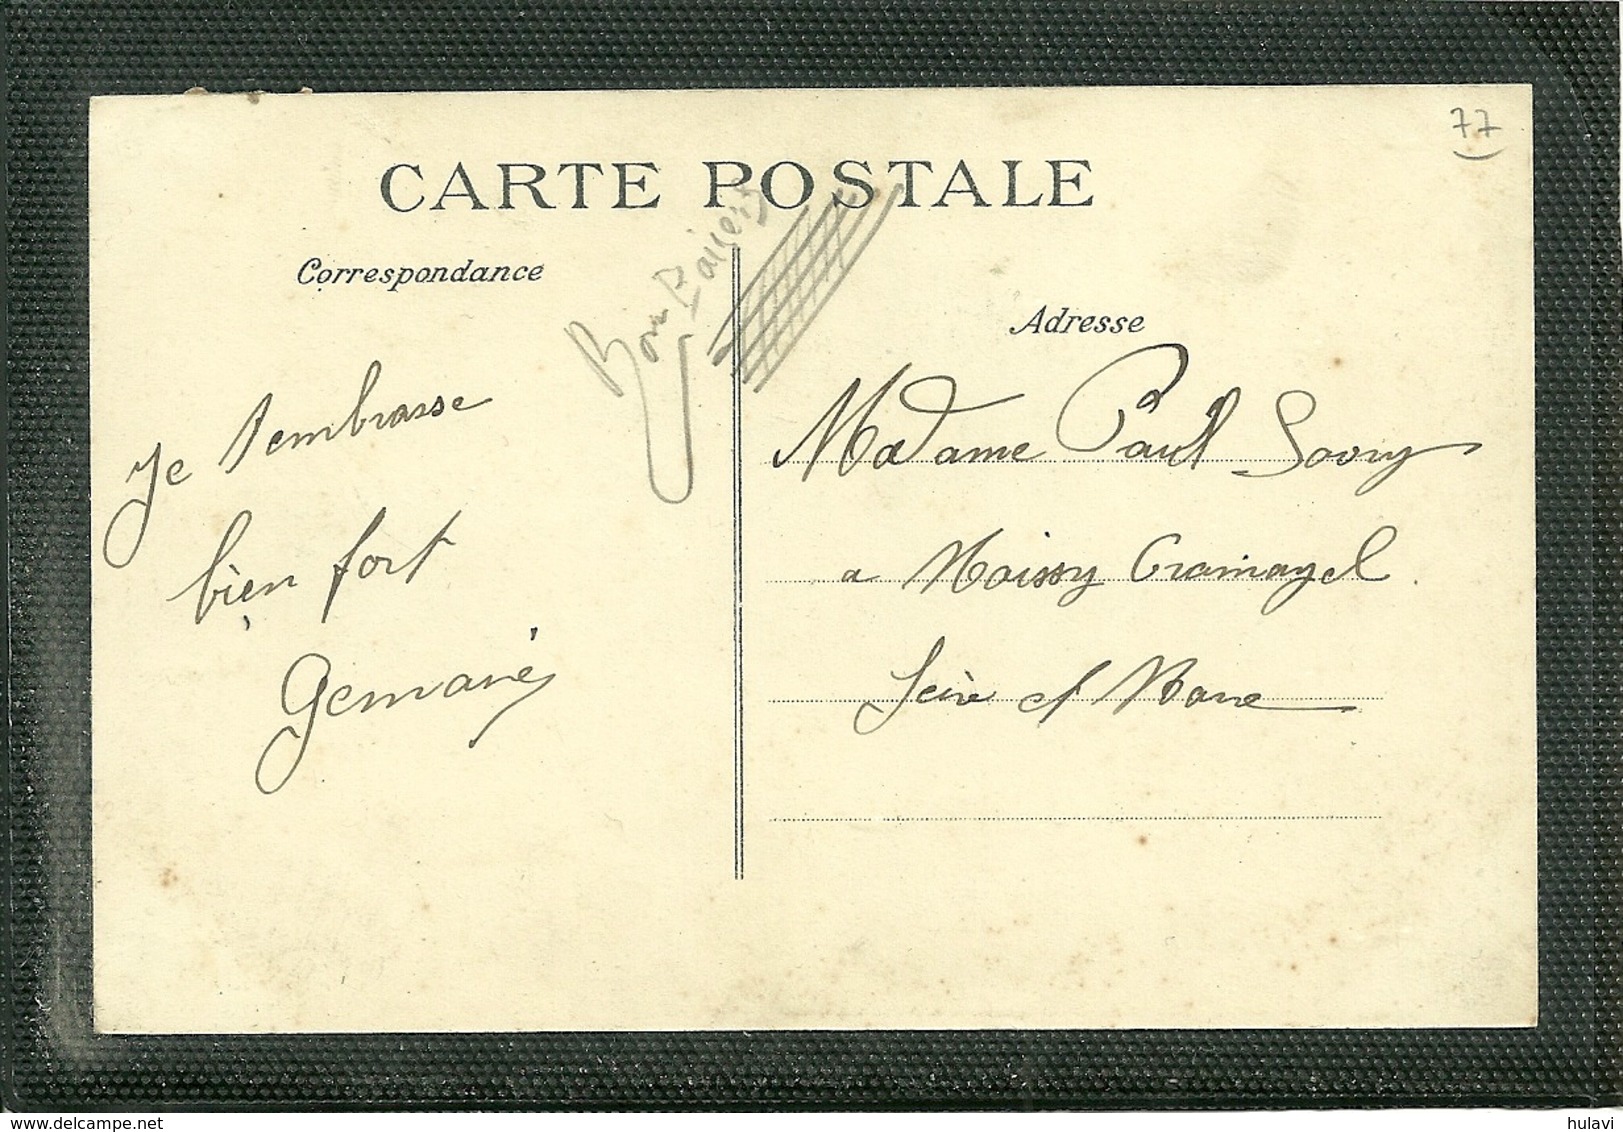 77
CARTE POSTALE
Correspondance
Bons Baisers
Adresse
Je t'embrasse
bien fort
Madame Paul Savry
a Moissy Cramayel
Seine et Marne
hulavi